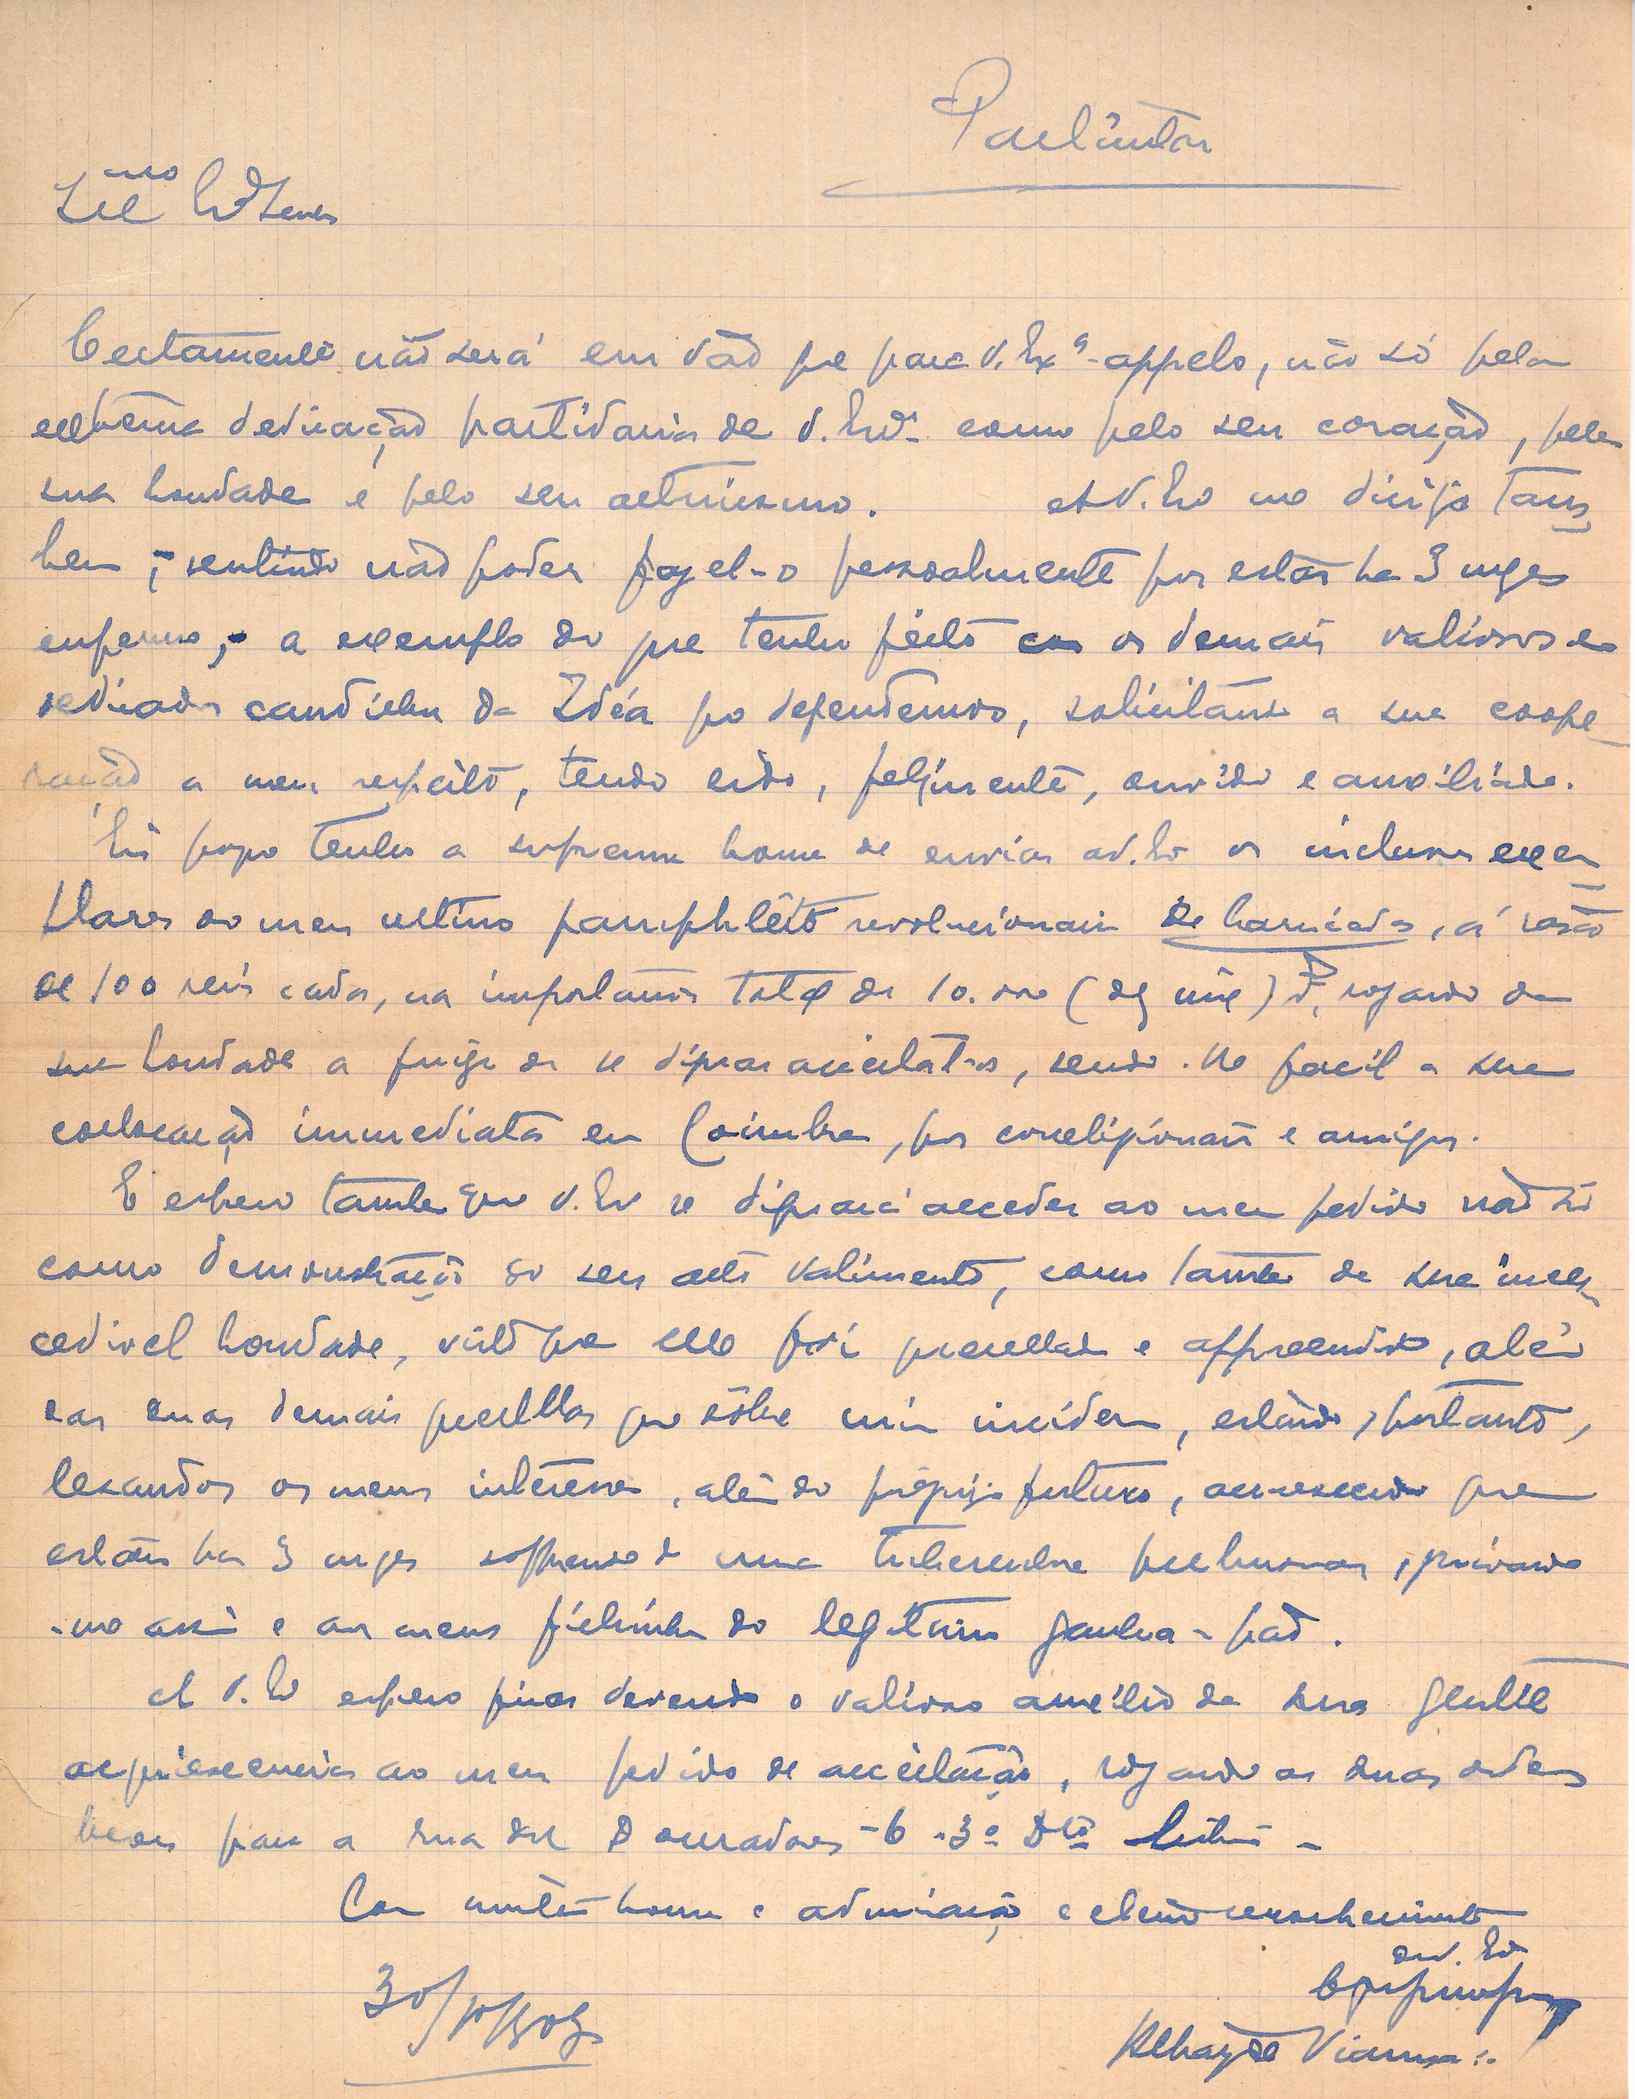 Particular
Ill.mo Ex.mo Senr
Certamente não será em vão que para V. Exª appelo, não só pela
extrema dedicação partidaria de V. Exª como pelo seu coração, pela
sua bondade e pelo seu altruismo. A V. Ex me dirijo tam
bem, sentindo não poder fazel-o pessoalmente por estar ha 3 mezes
enfermo, a exemplo do que tenho feito com os demais valiosos e
dedicados caudilhos da Idéa que defendemos, solicitando a sua coope
ração a meu respeito, tendo sido, felizmente, ouvido e auxiliado.
Eis porque tenho a suprema honra de enviar a V. Ex os inclusos exem
plares do meu ultimo pamphlêto revolucionario De barricada, á razão
de 100 reis cada, na importancia total de 10.000 (dez mil) rs, rogando da
sua bondade a fineza de se dignar acceital-os, sendo-lhe facil a sua
collocação immediata em Coimbra, por correligionarios e amigos.
E espero tambem que V. Ex se dignará acceder ao meu pedido não só
como demonstração do seu alto valimento, como tambem da sua inex
cedivel bondade, visto que elle foi querellado e apprendido, além
das duas demais querellas que sôbre mim incidem, estando, portanto,
lesados os meus interesses, além do proprio futuro, accrescendo que
estou ha 3 mezes soffrendo de uma tuberculose pulmonar, privando
-me assim e aos meus filhinhos do legitimo ganha-pão.
A V. Ex espero ficar devendo o valioso auxilio da sua gentil
acquiescencia ao meu pedido de acceitação, rogando as suas ordens
para a Rua dos Douradores - 6 - 3º Dtº Lisboa -
Com muita honra e admiração e eterno reconhecimento
de V. Ex
30/10/909
Vianna